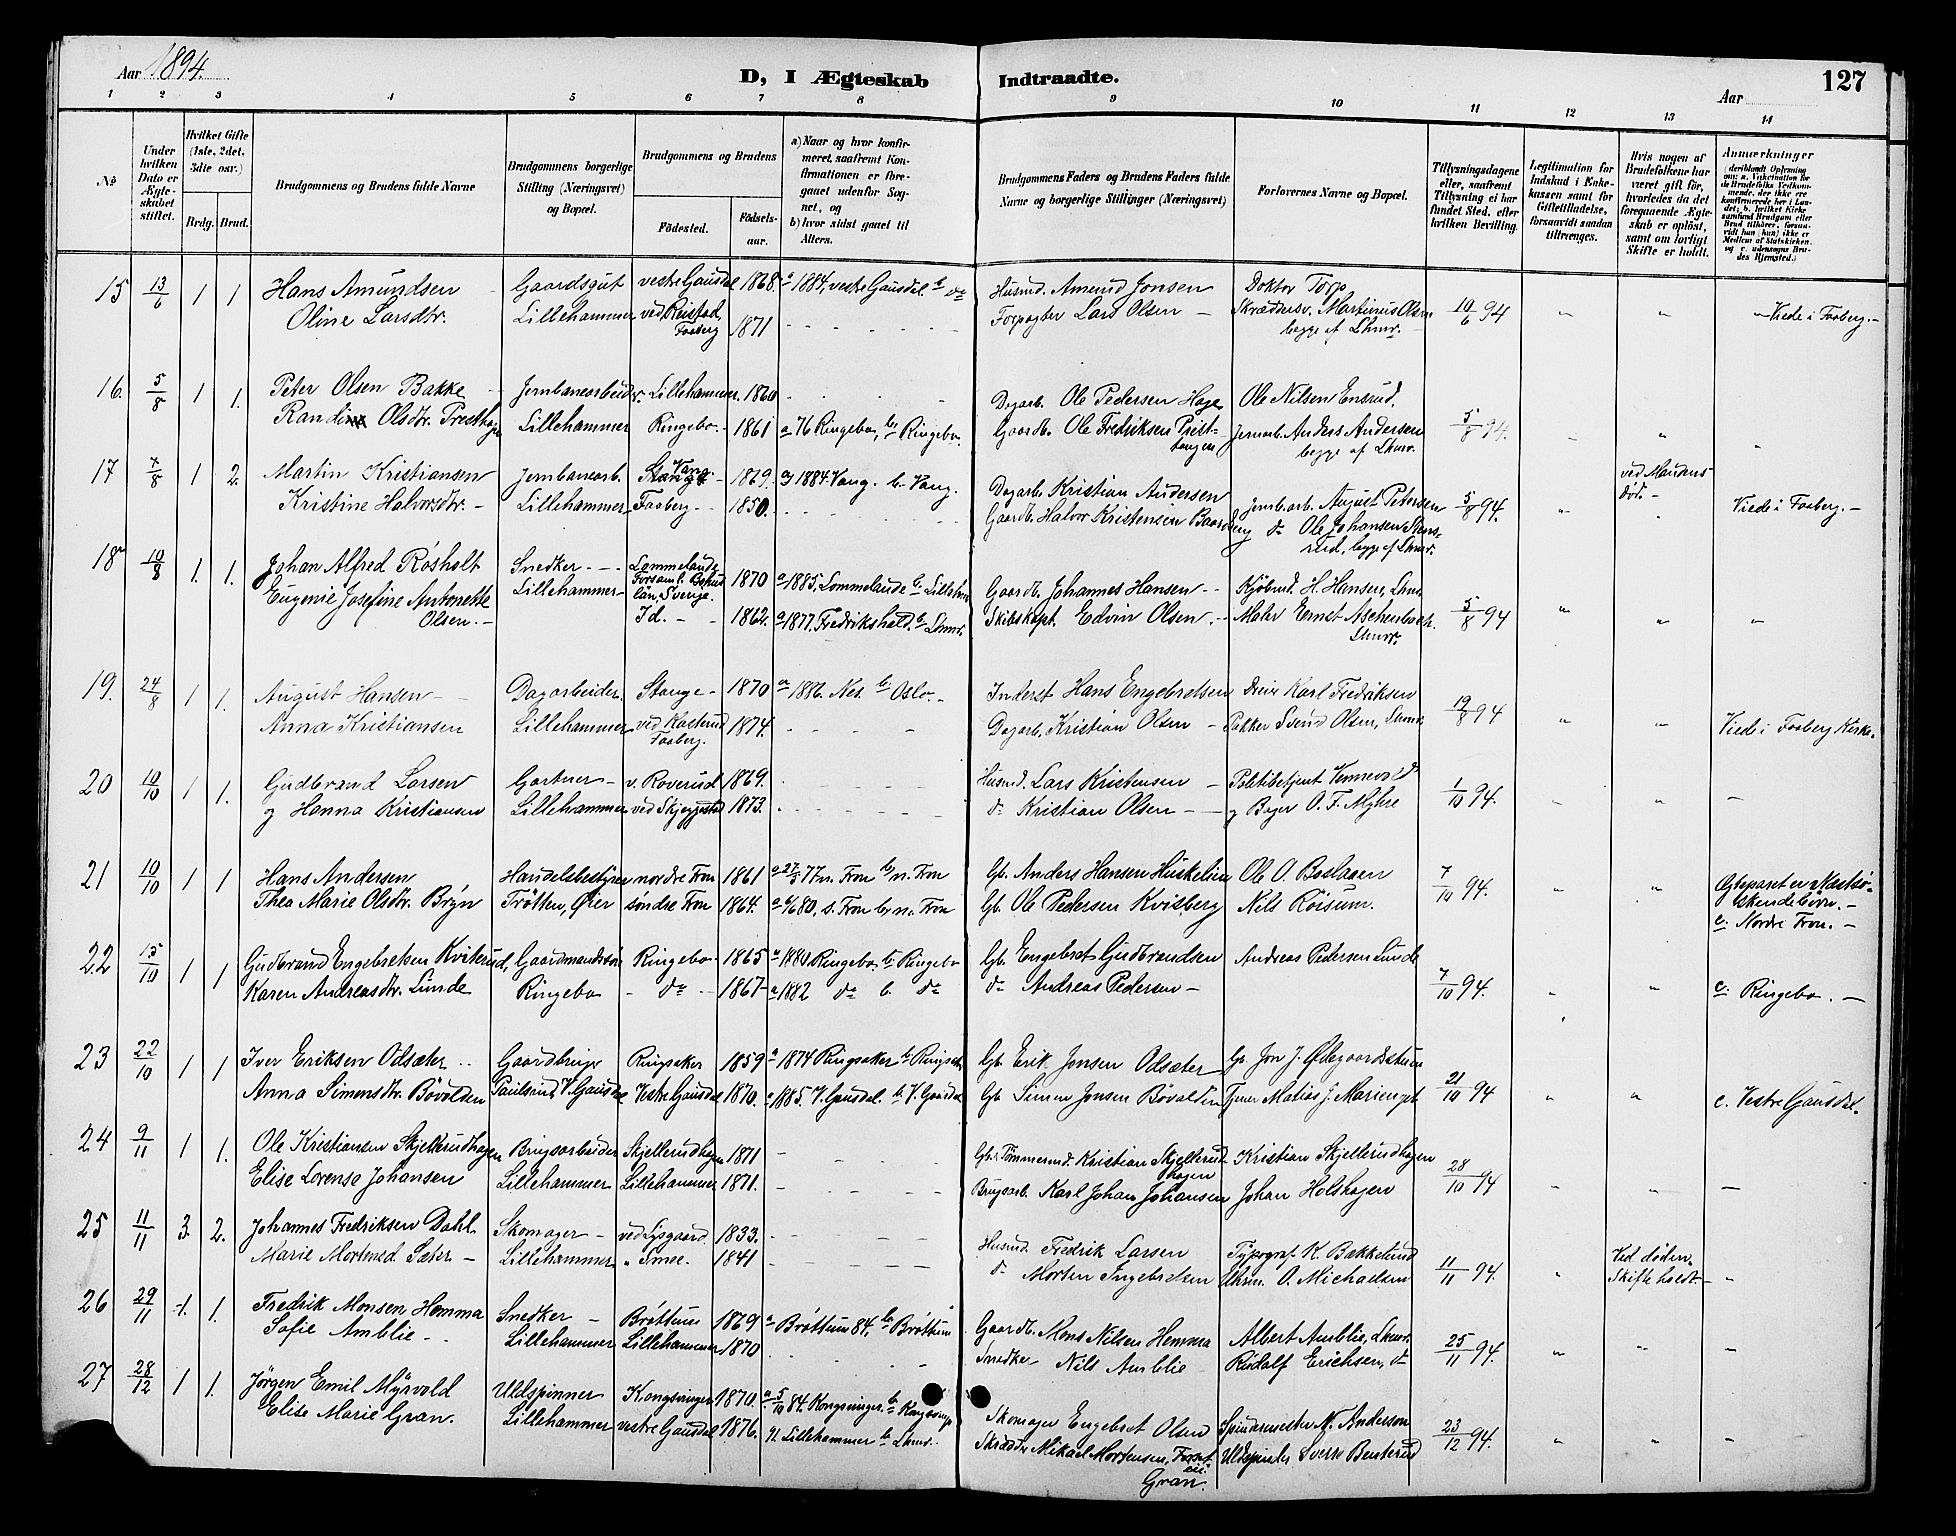 Aar 1894.
D, I Ægteskab Indtraadte.
Aar
127
1 2 3 4 5 6 7 8 9 10 11 12 13 14
No
Under hvilken Dato er Ægteskabet stiftet.
Hvilket Gifte (1ste, 2det, 3die osv.)
Brdg. Brud.
Brudgommens og Brudens fulde Navne
Brudgommens borgerlige Stilling (Næringsvei) og Bopæl.
Brudgommens og Brudens
Födested. Födselsaar.
a) Naar og hvor konfirmeret, saafremt Konfirmationen er foregaaet udenfor Sognet, og
b) hvor sidst gaaet til Alters.
Brudgommens Faders og Brudens Faders fulde Navne og borgerlige Stillinger (Næringsvei)
Forlovernes Navne og Bopæl.
Tillysningsdagene eller, saafremt Tillysning ei har fundet Sted, efter hvilken Bevilling.
Legitimation for Indskud i Enkekassen samt for Giftetilladelse, forsaavidt saadan tiltrænges.
Hvis nogen af Brudefolkene har været gift för, hvorledes da det foregaaende Ægteskab er oplöst, samt om lovligt Skifte er holdt.
Anmærkninger
15 13/6 1 1 Hans Amundsen Gaardsgut vestre Gausdal 1868. a 1884, vestre Gausdal. b do Husmd. Amund Jonsen Doktor Torp,
Oline Larsdtr. Lillehammer ved Reistad, Faaberg 1871 Forpagter Lars Olsen Skrædersv. Martinus Olsen begge af Lhmr. 10/6 94 Viede i Faaberg.
16. 5/8 1 1. Peter Olsen Bakke Jernbanearbeider. Lillehammer. 1860 Dagarb. Ole Pedersen Hage Ole Nilsen Ensrud.
Randi Olsdtr. Lillehammer Ringebo. 1861 a 76 Ringebo, b Ringebo. Gaardb. Ole Fredriksen Jernarb. Anders Andersen begge af Lhmr. 5/8 94.
17 7/8 1 2. Martin Kristiansen Jernbanearb. Vang. 1869. a 1884 Vang. b. Vang. Dagarb. Kristian Andersen Jernb. arb. August Petersen 5/8 94. ved Mandens död.
Kristine Halvorsdtr. Lillehammer Faaberg 1850. Gaardb. Halvor Kristensen do Ole Johansen begge af Lhmr. Viede i Faaberg.
18 10/8 1. 1. Johan Alfred Rösholt Snedker Lommelands Sverige. 1870 a 1885. Lommelande b. Gaardb. Johannes Hansen Kjöbmd. H. Hansen, Lhmr
Eugenie Josefine Antonette Olsen. Lillehammer Id. 1862. a 1877. Fredrikshald. b Lhmr. Skibskapt. Edvin Olsen. Maler Ernst Aschenbach. Lhmr. 5/8 94
19. 24/8 1 1. August Hansen Dagarbeider. Stange 1870 a 1886. Nes. b. Oslo. Inderst Hans Engebretsen Karl Fredriksen
Anna Kristiansen Lillehammer ved Kasterud Faaberg. 1874. Dagarb. Kristian Olsen Pakker Svend Olsen, Lhmr. 19/8 94 Viede i Faaberg Kirke.
20 10/10 1 1. Gudbrand Larsen Gartner v. Roverud 1869. Husmd. Lars Kristensen Politibetjent Vennevold
og Hanna Kristiansen Lillehammer ved Skjeggestad 1873. do Kristian Olsen og Bager O. F. Myhre 1/10 94.
21 10/10 1 1 Hans Andersen Handelsbestyrer nordre Fron 1861 a 27/5 77 n. Fron b n. Fron Gb. Anders Hansen Huskelien Ole O. Baslagen
Thea Marie Olsdtr. Bryn Trötten, Öier söndre Fron 1864. s. Fron b. n. Fron Gb. Ole Pedersen Kvisberg Nils Röisum. 7/10 94. Ægteparet er Næstsöskendebörn.
c. Nordre Fron.
22 15/10 1 1 Gudbrand Engebretsen Kviterud, Gaardmandssön Ringebo 1865 a 1880 Ringebo. b. Ringebo Gb. Engebret Gudbrandsen Andreas Pedersen Lunde
Karen Andreasdtr. Lunde Ringebo do 1867 a 1882 do b. do do Andreas Pedersen 7/10 94. c. Ringebo.
23 22/10 1 1 Iver Eriksen Odsæter Gaardbruger Ringsaker 1859 a 1874 Ringsaker b. Gb. Erik Jonsen Odsæter Gb. Jon J. Ödegaardstuen
Anna Simensdtr. Bövolden Paulsrud, V. Gausdal Vestre Gausdal 1870. a 1885. V. Gausdal. b. V. Gausdal Gb. Simen Jonsen Bövolden Tjener Matias J. Marienget 21/10 94 c. Vestre Gausdal.
24 9/11 1 1. Ole Kristiansen Skjellerudhagen Brugsarbeider Skjellerudhagen 1871 Gb. Tömmermd. Kristian Skjellerudhagen Kristian Skjellerudhagen
Elise Lorense Johansen Lillehammer Lillehammer 1871. Brugsarb. Karl Johan Johansen Johan Holshagen 28/10 94
25 11/11 3. 2. Johannes Fredriksen Dahl. Skomager ved Lysgaard. 1833. Husmd. Fredrik Larsen Typograf K. Bakkerud Ved döden.
Marie Mortensd. Sæter Lillehammer 1841 do Morten Ingebretsen O. Michaelsen 11/11 94. Skifte holdt
26 29/11 1. 1. Fredrik Monsen Hemma Snedker Bröttum 1869 a Bröttum 84, b. Bröttum Gaardb. Mons Nilsen Hemma Albert Amblie, Lhmr.
Sofie Amblie Lillehammer Lillehammer 1870 Snedker Nils Amblie Rudolf Erichsen, do 25/11 94.
27 28/12 1 1. Jörgen Emil Myrvold Uldspinner Kongsvinger 1870. a 5/10 84. Kongsvinger. b. Kongsvinger Skomager Engebret Olsen Spindemester N. Anderson
Elise Marie Gran. Lillehammer vestre Gausdal 1876. Lillehammer b. Lhmr. Skrædder Mikael Mortensen, Gran. Uldspinder Sverre Benterud 23/12 94.